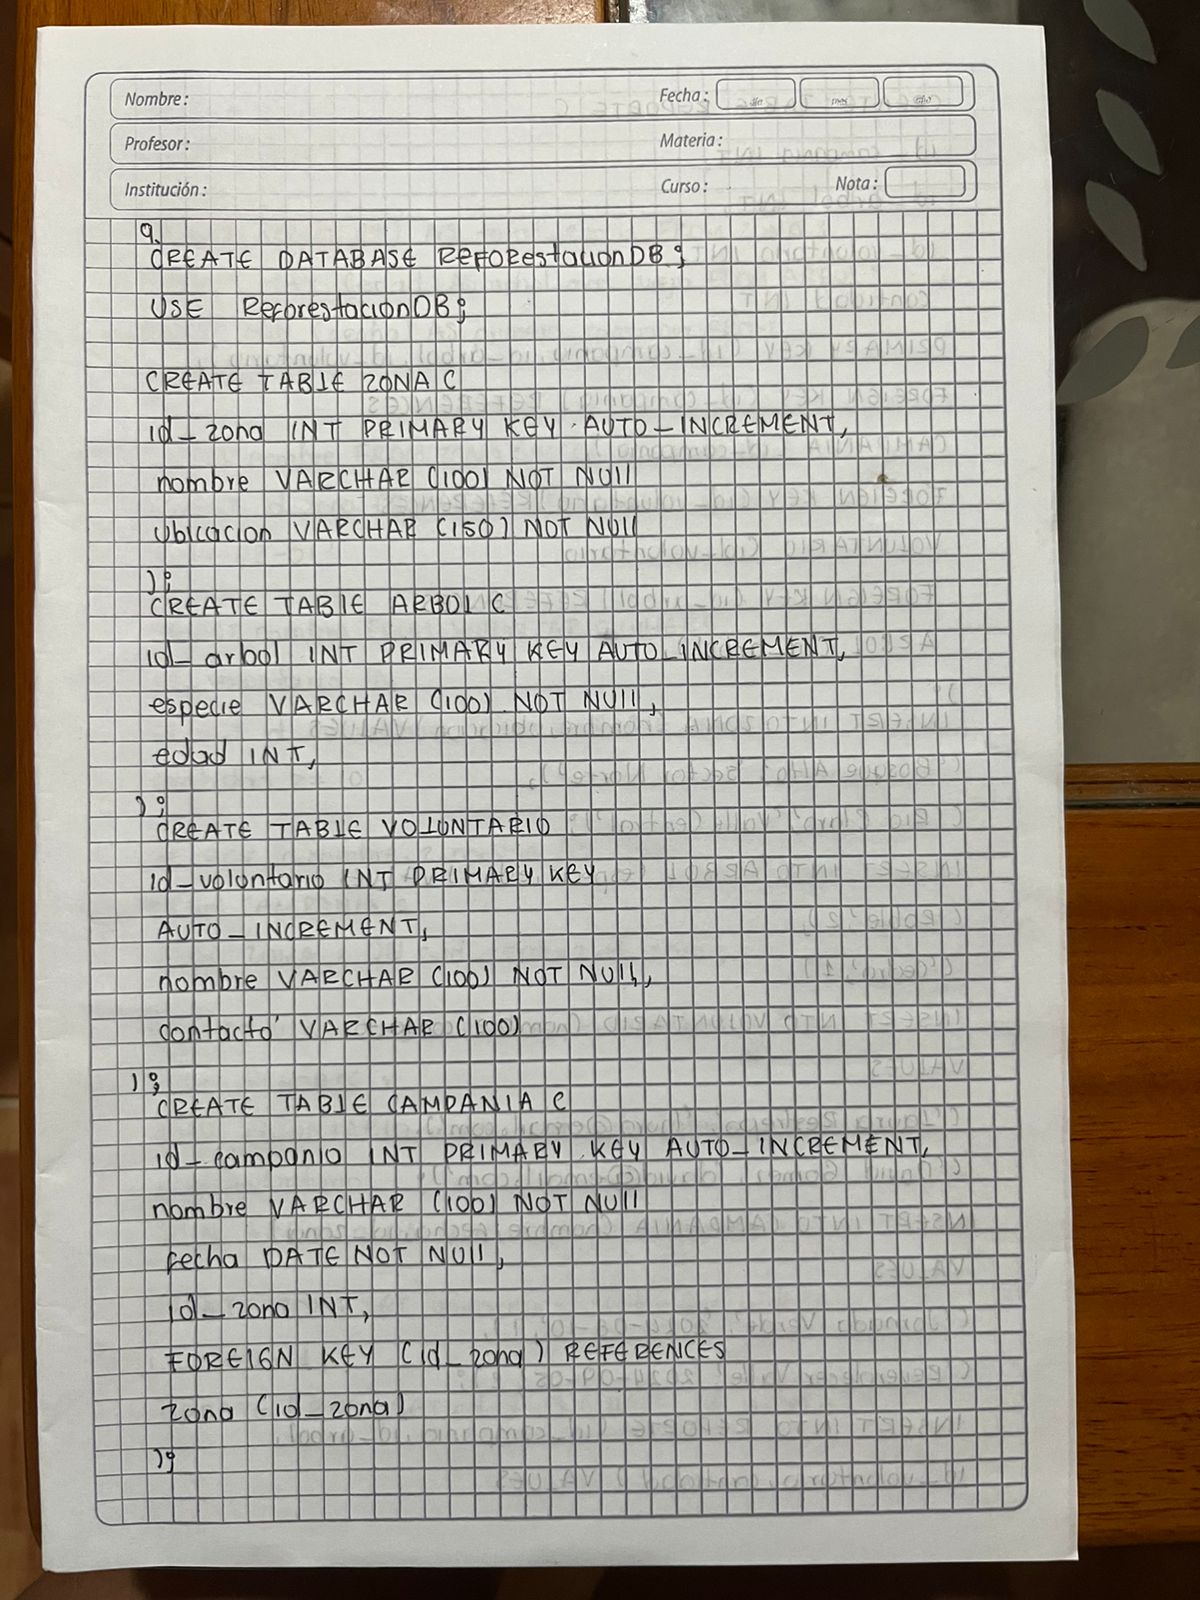 Nombre:
Fecha:
Profesor:
Materia:
Institución:
Curso:
Nota:
9.
CREATE DATABASE ReFOrestacionDB;
USE ReforestacionDB;
CREATE TABLE ZONA (
id_zona INT PRIMARY KEY AUTO_INCREMENT,
nombre VARCHAR (100) NOT NUll
Ubicacion VARCHAR (150) NOT NUll
);
CREATE TABLE ARBOL (
id_arbol INT PRIMARY KEY AUTO_INCREMENT,
especie VARCHAR (100) NOT NUll,
edad INT,
);
CREATE TABLE VOLUNTARIO
id_voluntario INT PRIMARY KEY
AUTO_INCREMENT,
nombre VARCHAR (100) NOT NUll,
contacto VARCHAR (100)
);
CREATE TABLE CAMPANIA (
id_campania INT PRIMARY KEY AUTO_INCREMENT,
nombre VARCHAR (100) NOT NUll
fecha DATE NOT NUll,
id_zona INT,
FOREIGN KEY (id_zona) REFERENCES
zona (id_zona)
);